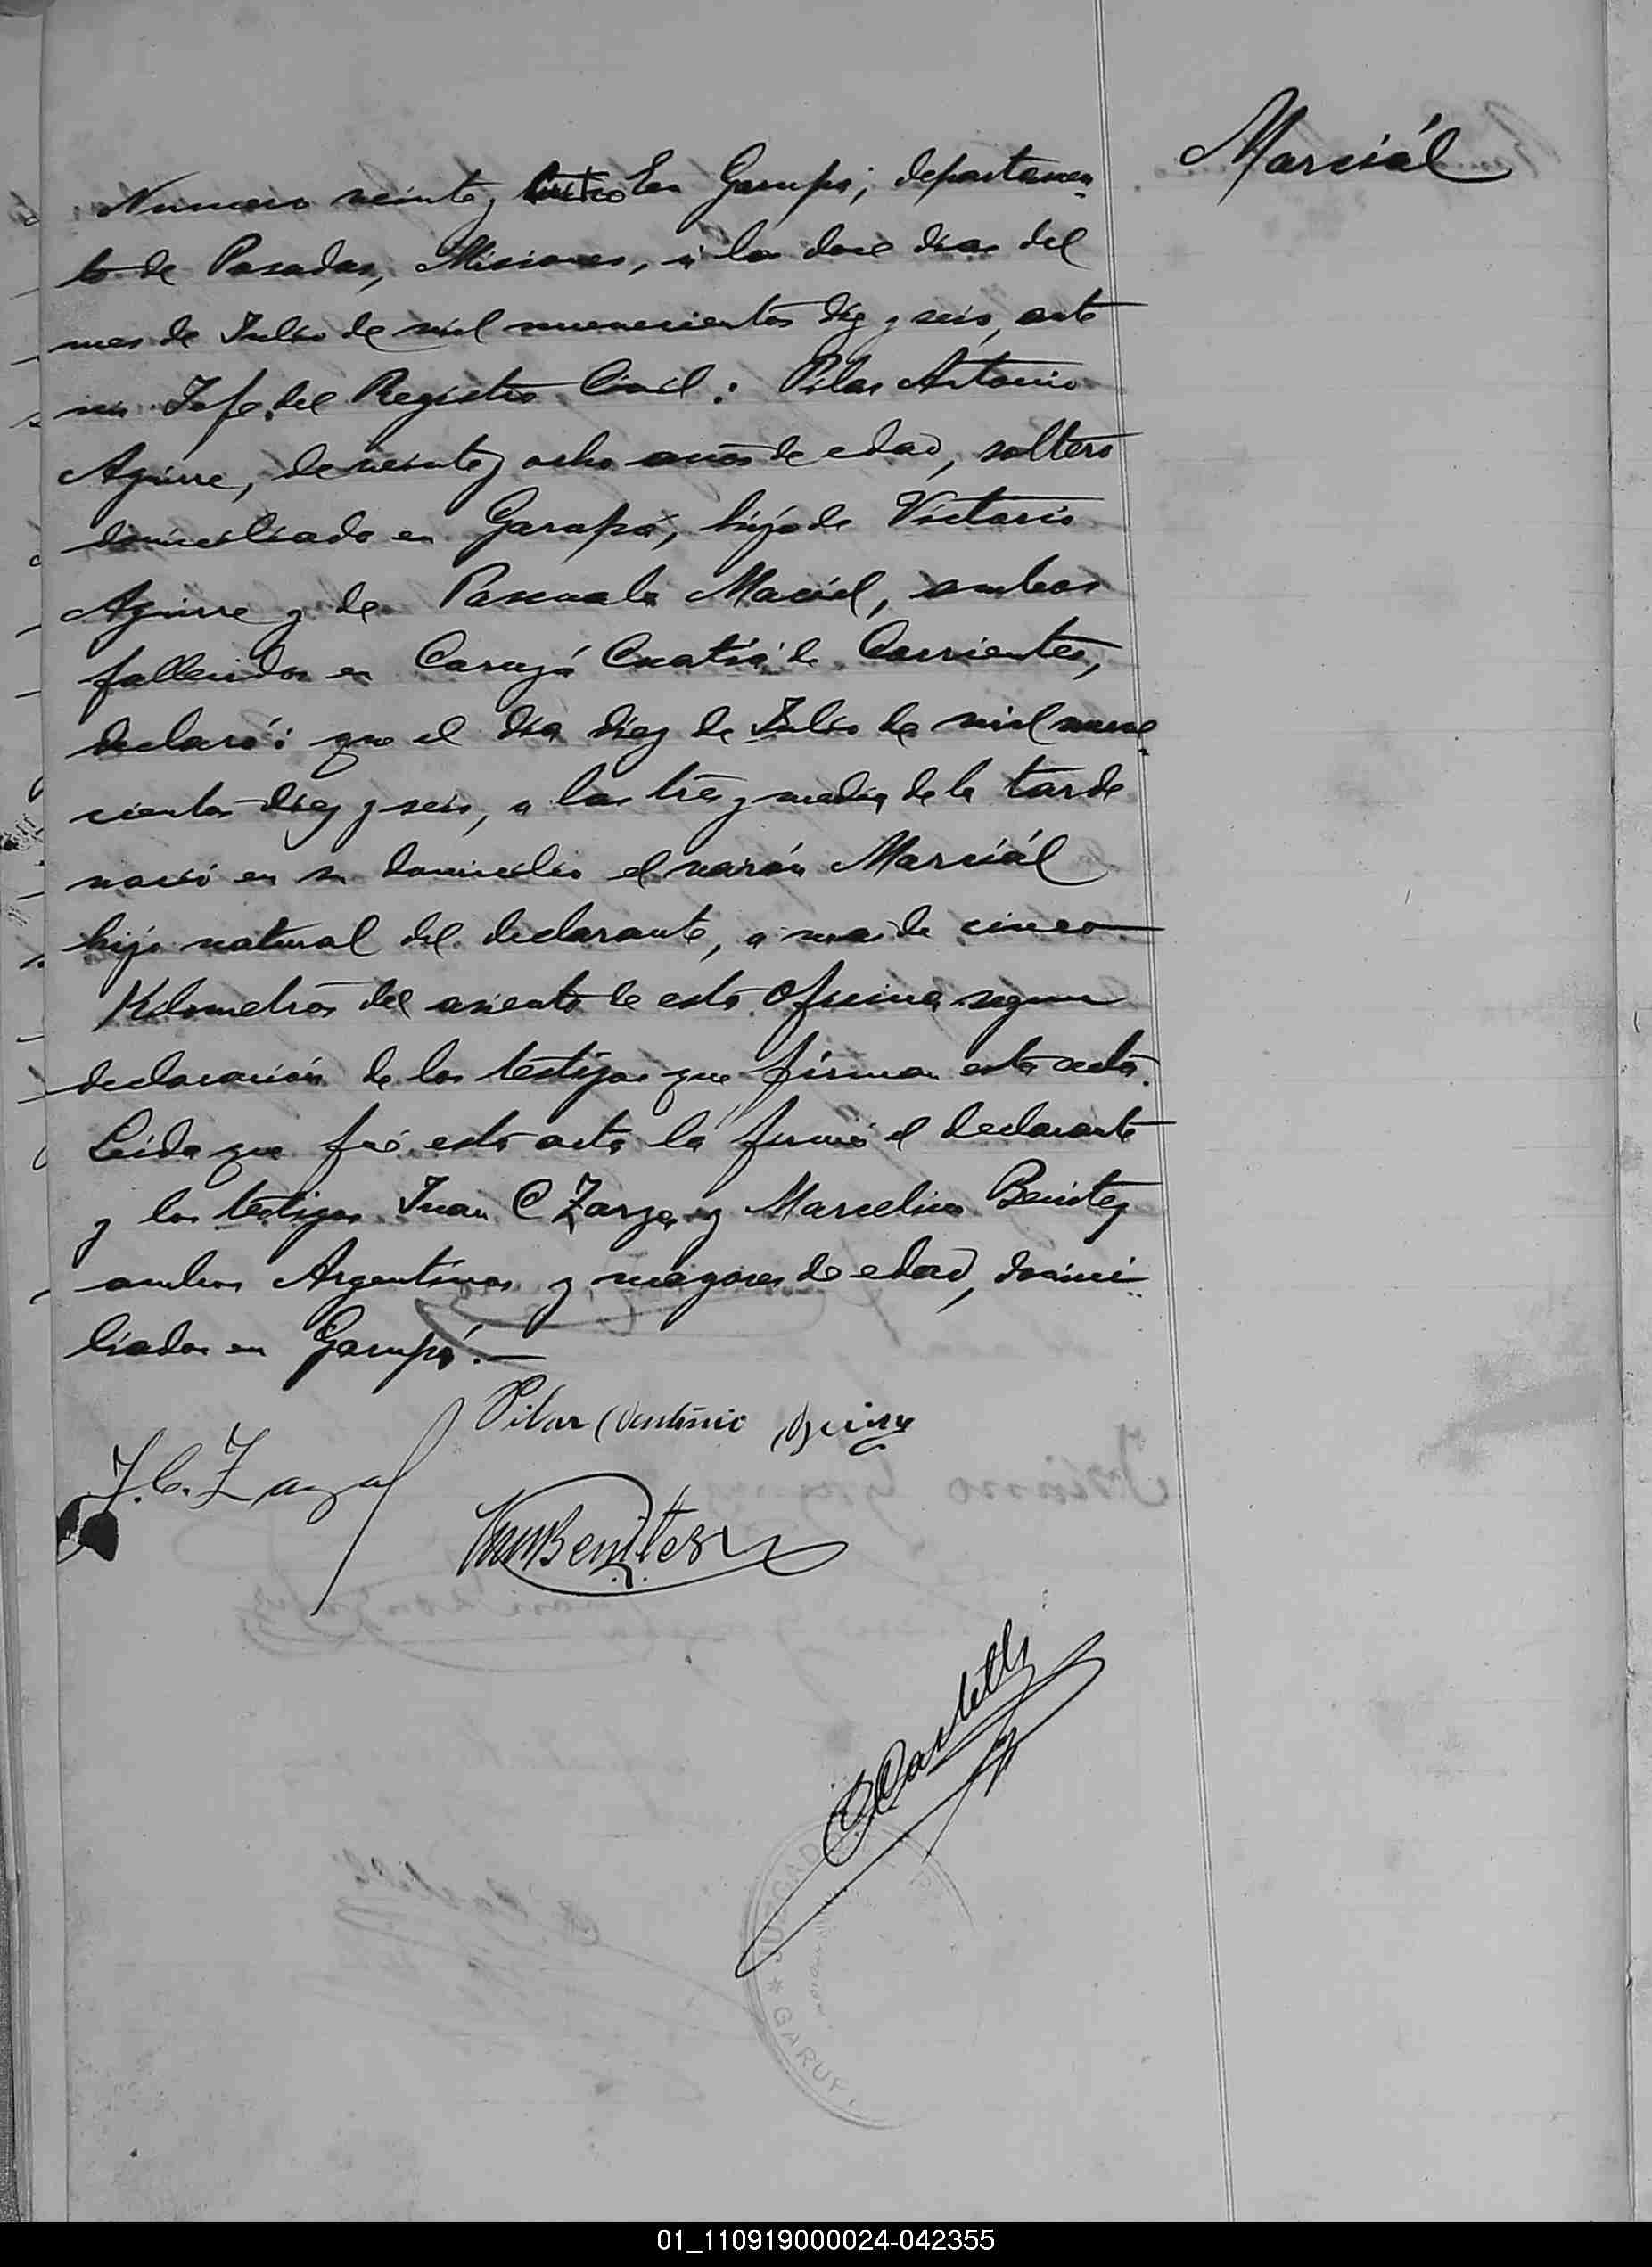 Marciál
Numero veinte y En Garupá; departamen-
to de Posadas, Misiones, á los doce dias del
mes de Julio de mil novecientos diez y seis, ante
mi Jefe del Registro Civil: Pilar Antonio
Aguirre, de veinte y ocho años de edad, soltero
domiciliado en Garupá, hijo de Victorio
Aguirre y de Pascuala Maciel, ambos
fallecidos en Curuzú Cuatiá de Corrientes,
declaró: que el dia diez de Julio de mil nove-
cientos diez y seis, a las tres y media de la tarde
nació en su domicilio el varón Marciál
hijo natural del declarante, a mas de cinco
Kilometros del asiento de esta Oficina segun
declaración de los testigos que firman esta acta.
Leida que fué esta acta la firmó el declarante
y los testigos Juan C Zarza y Marcelino Benitez
ambos Argentinos y mayores de edad, domici-
liados en Garupá.—
Pilar Antonio Aguirre
J. C. Zarza
Benitez
JUZGADO
* GARUP
01_110919000024-042355